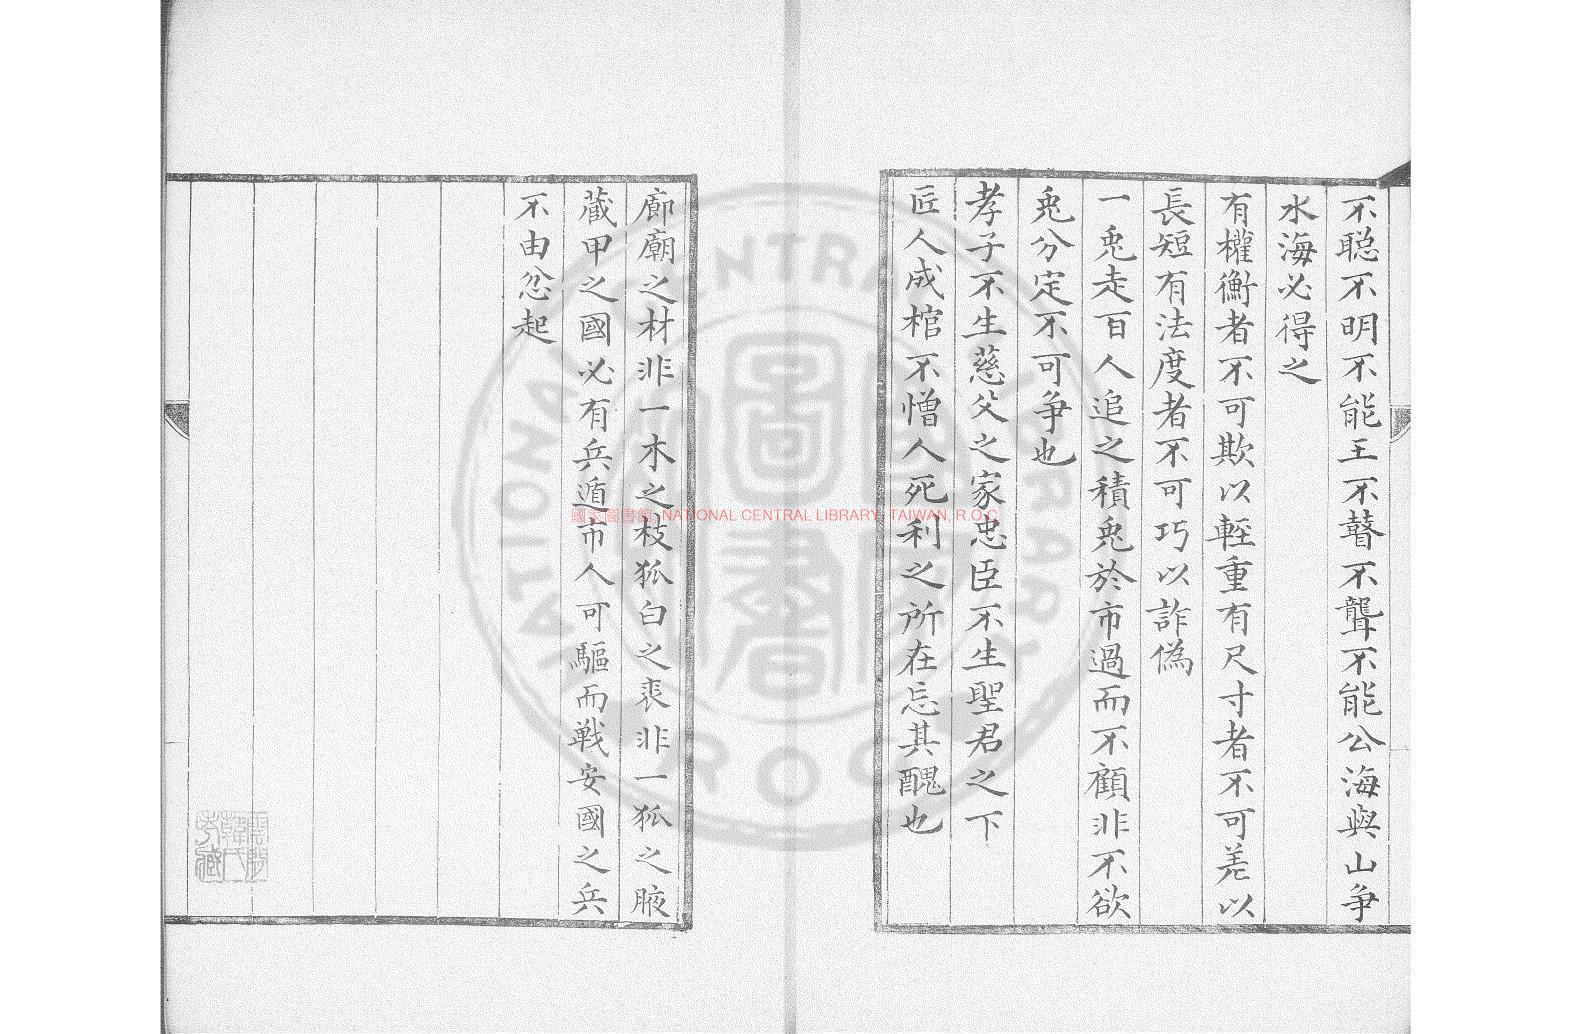 不聡不明不能王不瞽不聾不能公海與山争
水海必得之
有權衡者不可欺以輕重有尺寸者不可差以
長短有法度者不可巧以詐偽
一兎走百人追之積兎於市過而不顧非不欲
兎分定不可争也
孝子不生慈父之家忠臣不生聖君之下
匠人成棺不憎人死利之所在忘其醜也
廊廟之材非一木之枝狐白之裘非一狐之腋
藏甲之國必有兵遁市人可驅而戰安國之兵
不由忿起
國家圖書館 NATIONAL CENTRAL LIBRARY, TAIWAN, R.O.C
NATIONAL CENTRAL LIBRARY
R O C
圖書